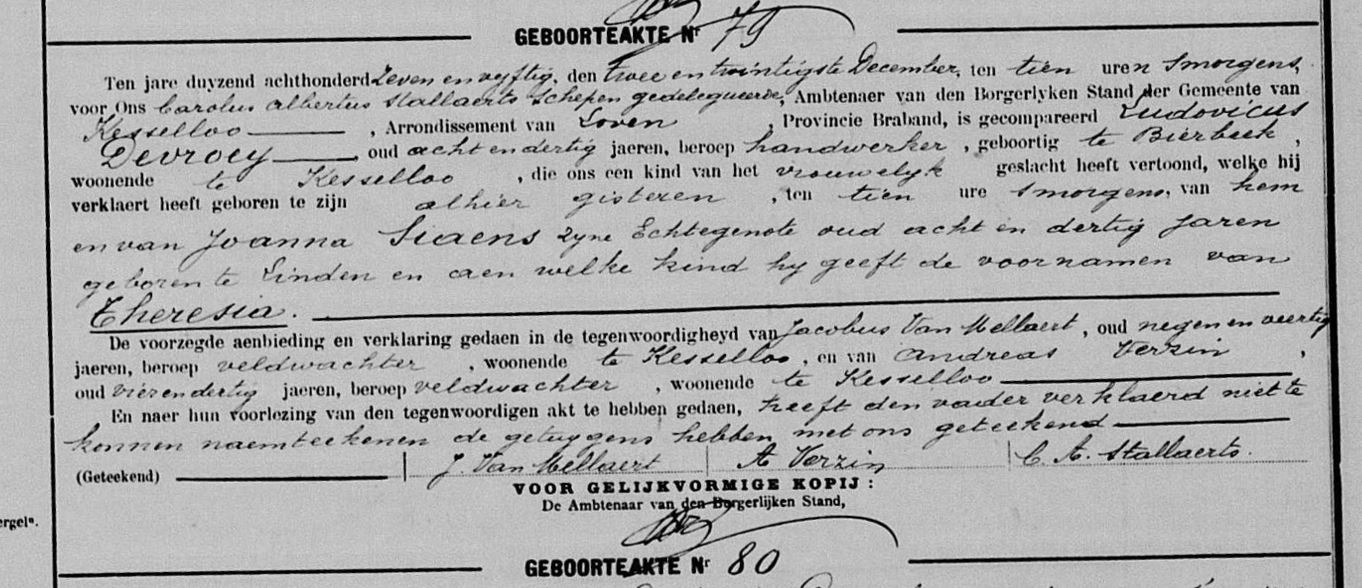 GEBOORTEAKTE Nr 79
Ten jare duyzend achthonderd Zeven en vyftig, den twee en twintigste December, ten tien uren Smorgens,
voor Ons Carolus albertus Stallaerts Schepen gedelegueerde, Ambtenaer van den Borgerlyken Stand der Gemeente van
Kesselloo, Arrondissement van Loven, Provincie Braband, is gecompareerd Ludovicus
Devroey, oud acht en dertig jaeren, beroep handwerker, geboortig te Bierbeek,
woonende te Kesselloo, die ons een kind van het vrouwelyk geslacht heeft vertoond, welke hij
verklaert heeft geboren te zijn alhier gisteren, ten tien ure Smorgens, van hem
en van Joanna Staens zyne Echtegenote oud acht en dertig Jaren
geboren te Linden en aen welke kind hy geeft de voornamen van
Theresia.
De voorzegde aenbieding en verklaring gedaen in de tegenwoordigheyd van Jacobus Van Mellaert, oud negen en veertig
jaeren, beroep veldwachter, woonende te Kesselloo, en van andreas Verzin,
oud vier en dertig jaeren, beroep veldwachter, woonende te Kesselloo
En naer hun voorlezing van den tegenwoordigen akt te hebben gedaen, heeft den vader verklaerd niet te
konnen naemteekenen de getuygens hebben met ons geteekend
(Geteekend) J. Van Mellaert A Verzin C. A. Stallaerts.
VOOR GELIJKVORMIGE KOPIJ :
De Ambtenaar van den Borgerlijken Stand,
ergeln.
GEBOORTEAKTE Nr 80